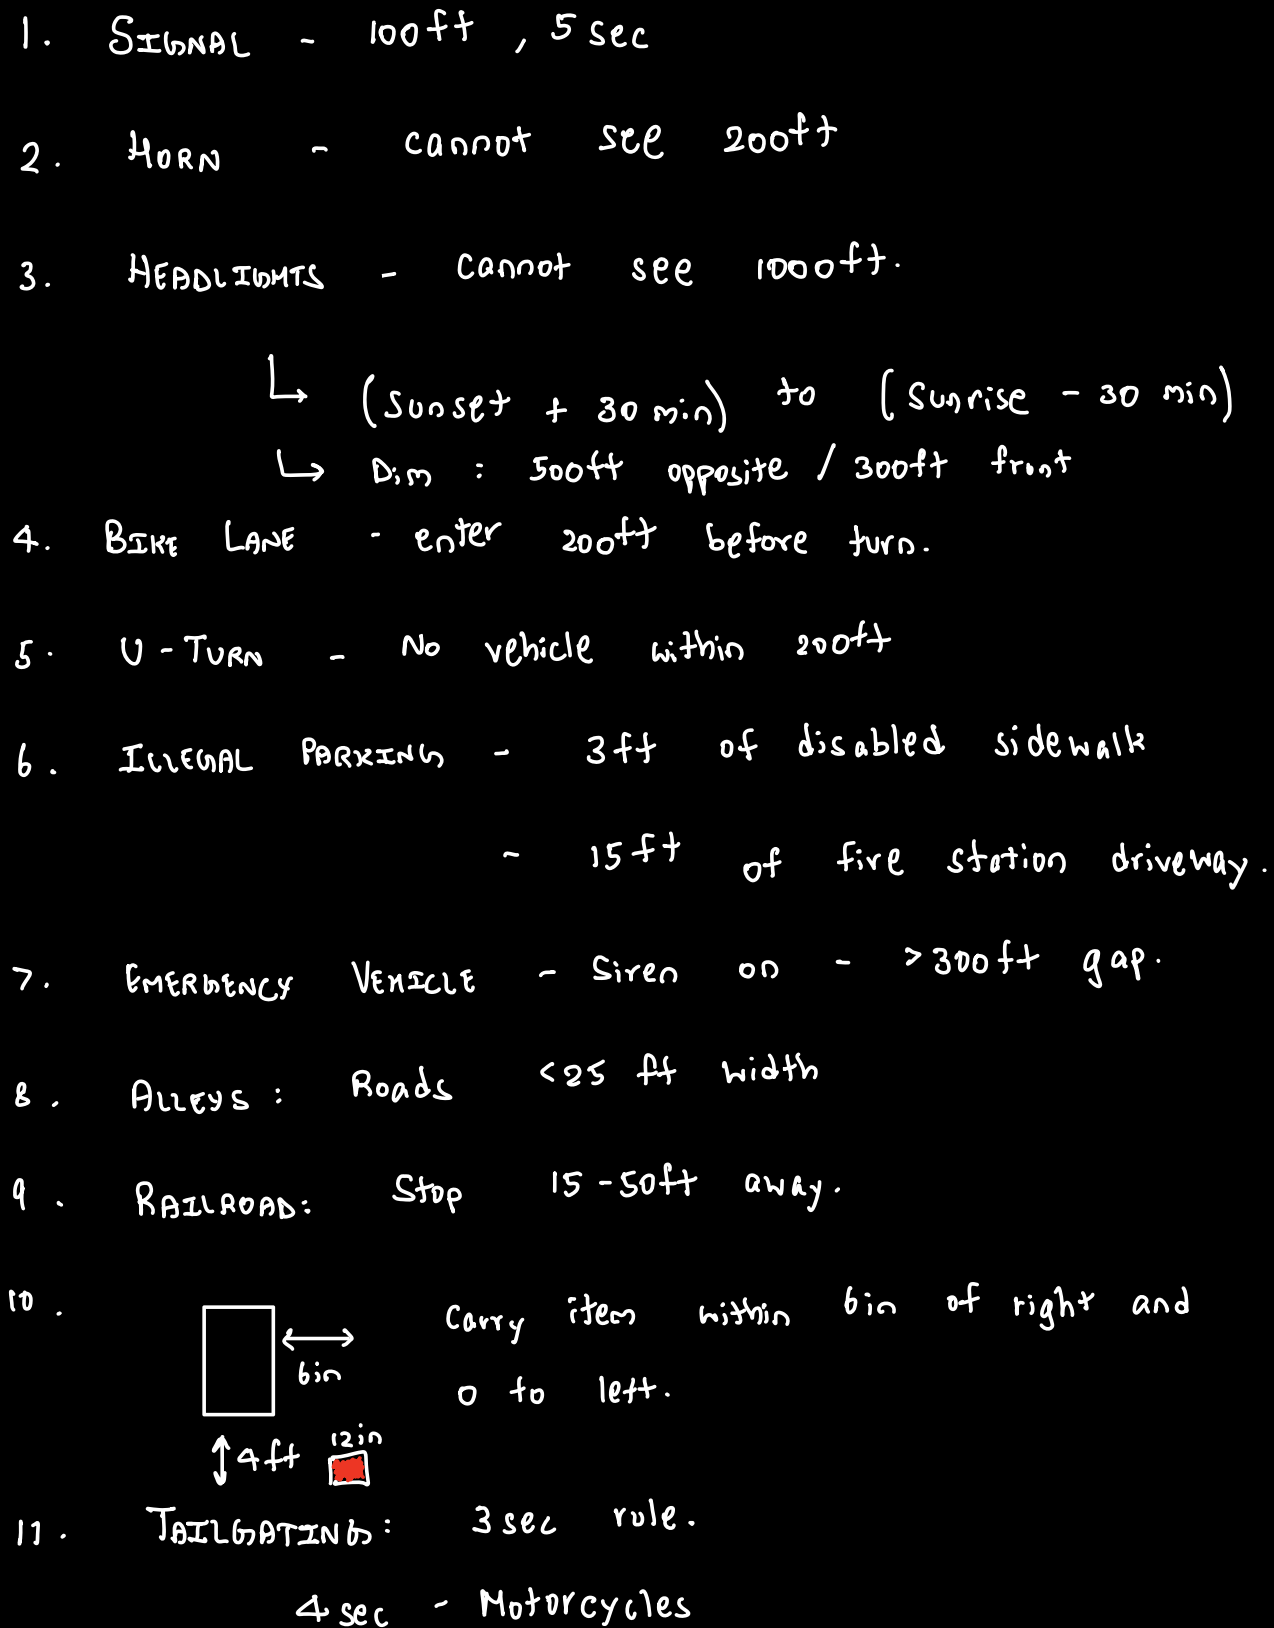 1. SIGNAL - 100ft , 5 sec
2. HORN - cannot see 200ft
3. HEADLIGHTS - cannot see 1000ft.
↳ (Sunset + 30 min) to (Sunrise - 30 min)
↳ Dim : 500ft opposite / 300ft front
4. BIKE LANE - enter 200ft before turn.
5. U-TURN - No vehicle within 200ft
6. ILLEGAL PARKING - 3ft of disabled sidewalk
- 15ft of fire station driveway.
7. EMERGENCY VEHICLE - Siren on - >300ft gap.
8. ALLEYS : Roads <25 ft width
9. RAILROAD: Stop 15-50ft away.
10. Carry item within 6in of right and
6in
0 to left.
4ft 12in
11. TAILGATING: 3 sec rule.
4 sec - Motorcycles